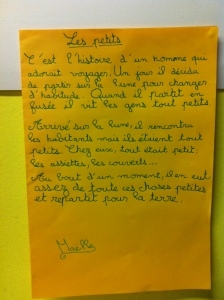 Les petits
C'est l'histoire d'un homme qui
adorait voyager. Un jour il décida
de partir sur la lune pour changer
d'habitude. Quand il partit en
fusée il vit les gens tout petits.
Arrivé sur la lune, il rencontra
les habitants mais ils étaient tout
petits. Chez eux, tout était petit,
les assiettes, les couverts...
Au bout d'un moment, il en eut
assez de toute ces choses petites
et repartit pour la terre.